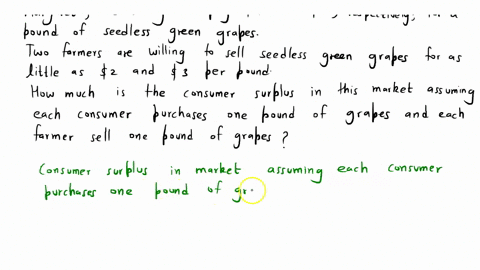 respectively, for a
pound of seedless green grapes.
Two farmers are willing to sell seedless green grapes for as
little as $2 and $3 per pound.
How much is the consumer surplus in this market assuming
each consumer purchases one pound of grapes and each
farmer sell one pound of grapes?
Consumer surplus in market assuming each consumer
purchases one pound of gr